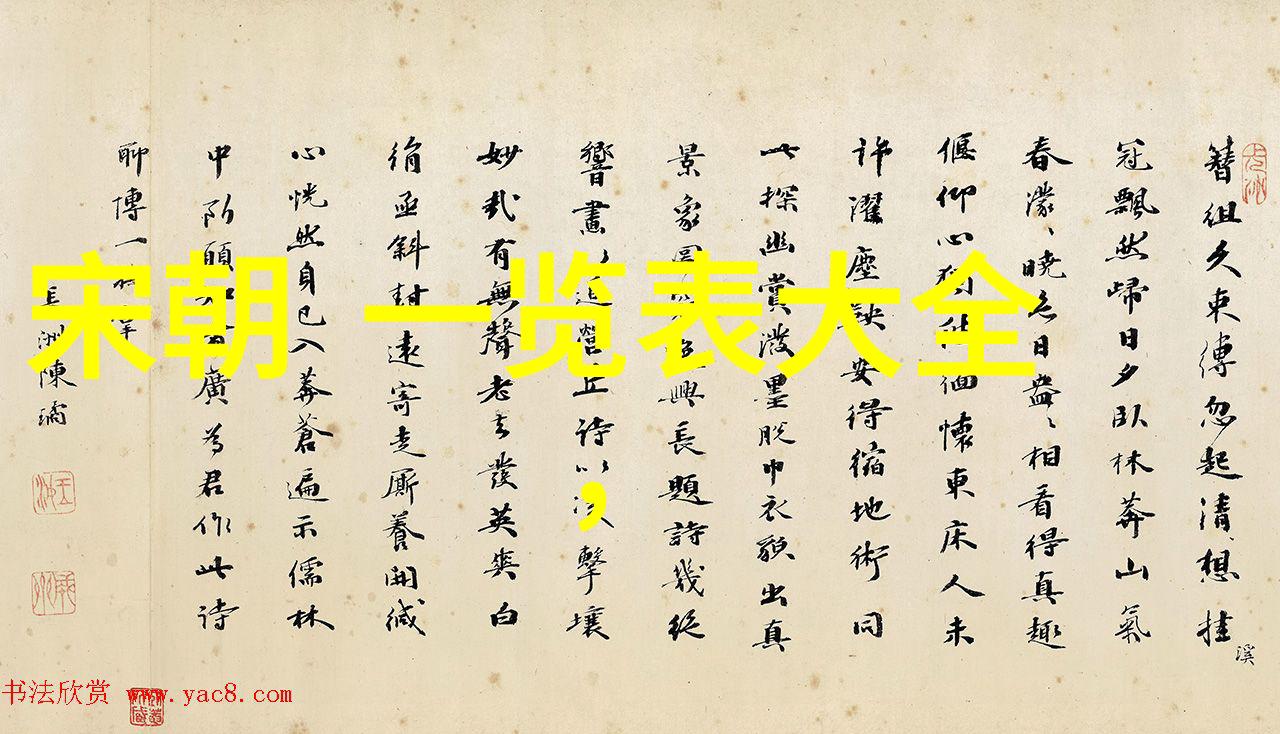 宋朝 一览表大全
，
簪組久束縛忽起清想挂
溪
冠飄然歸日夕臥林莽山氣
春濛〻曉色日盎〻相看得真趣
偃仰心緬懷東床人未
許濯塵鞅安得縮地術同
此探幽賞潑墨脫巾衣貌出真
景象興長題詩幾
響畫追營丘詩以擊壤
妙哉有無聲老去發英爽白
絹亟斜封遠寄走廝養開緘
心恍然自已入莽蒼遍示儒林
中所願廣為君作此詩
聊博一
長洲陳璚
书法欣赏 www.yac8.com